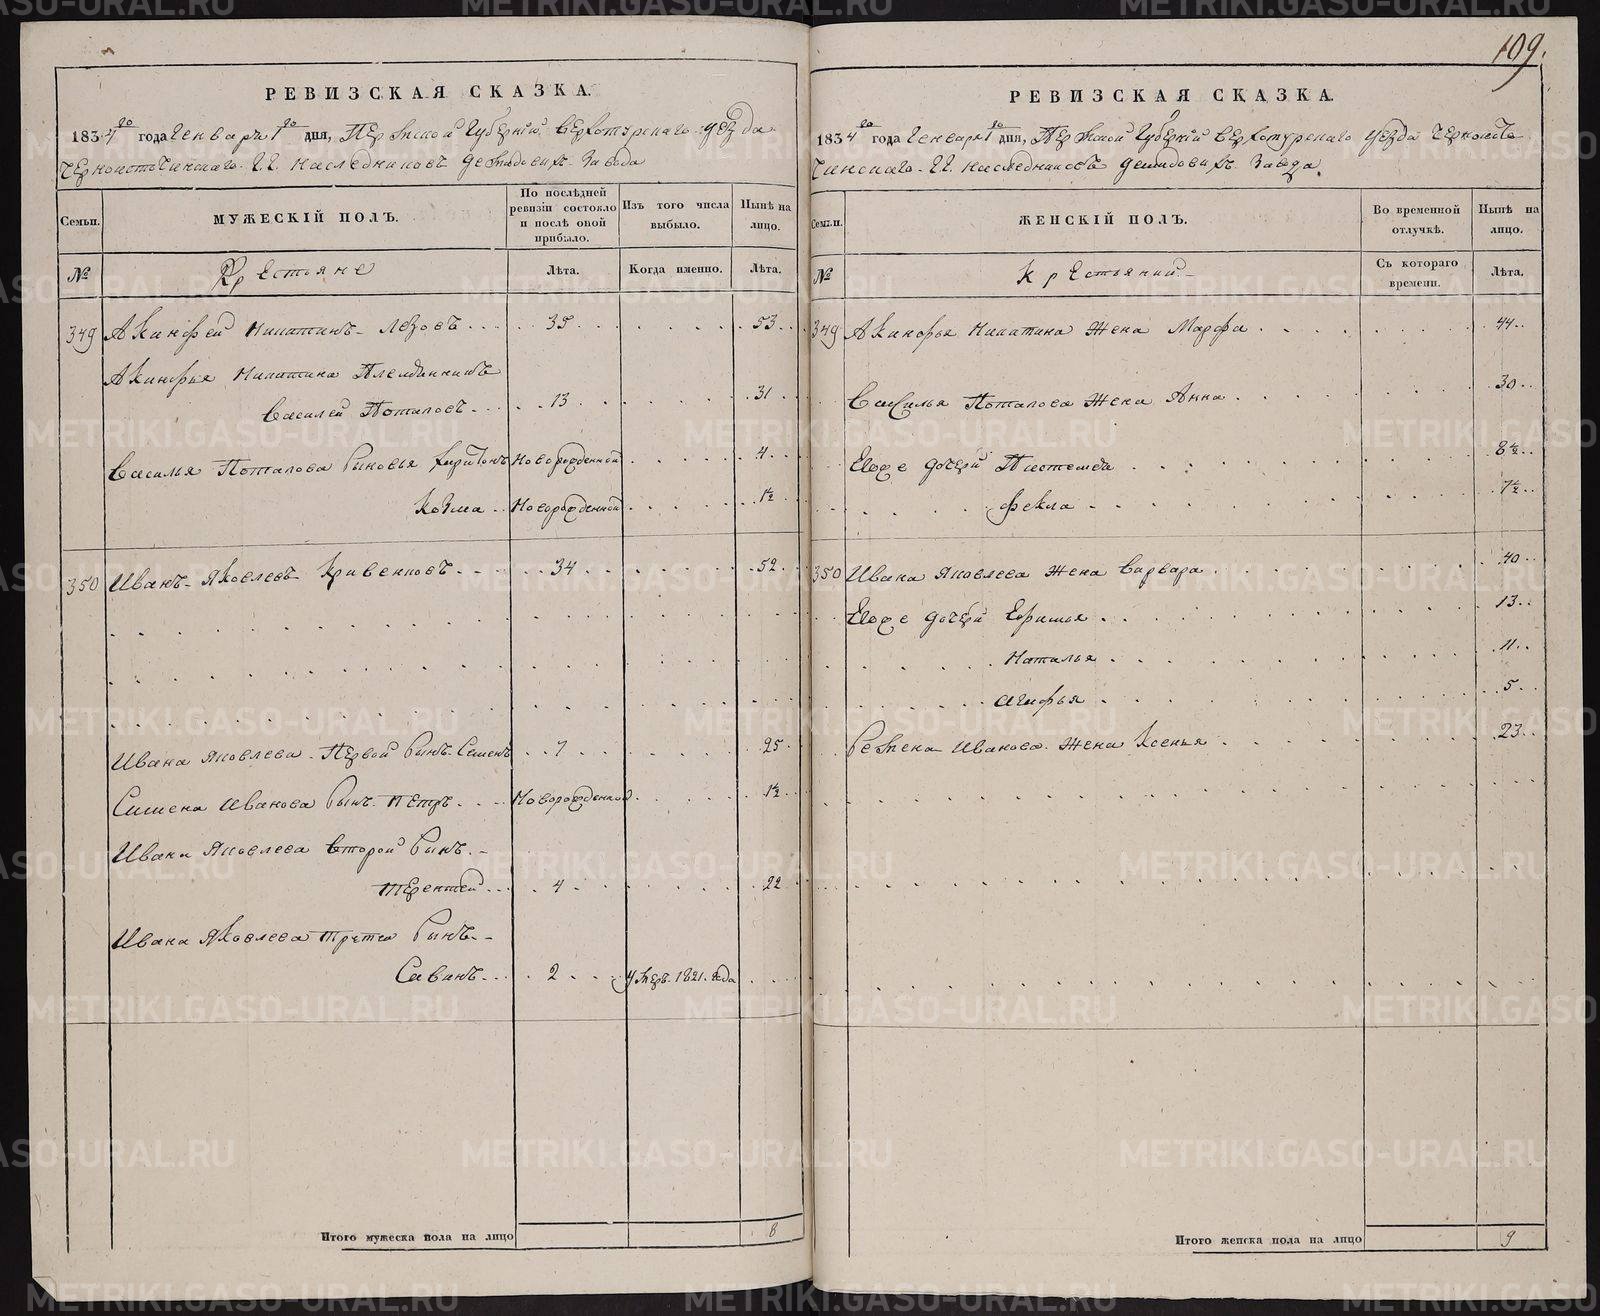 РЕВИЗСКАЯ СКАЗКА.
1834го года Генваря 1го дня, Пермской Губернiи Верхотурскаго уезда
Черноисточинскаго Г.Г. наследниковъ Демидовыхъ Завода
Семьи. МУЖЕСКІЙ ПОЛЪ. По послѣдней ревизіи состояло и послѣ оной прибыло. Изъ того числа выбыло. Нынѣ на лицо.
№ Крестьяне Лѣта. Когда именно. Лѣта.
349 Акинфей Никитинъ 35 53
Акинфья Никитина Племянникъ
Василей Потаповъ 13 31
Василья Потапова Сыновья Новорожденной 4
Козма Новорожденной 1½
350 Иванъ Яковлевъ Кривенковъ 34 52
Ивана Яковлева Первой Сынъ Семенъ 7 25
Семена Иванова Сынъ Петръ Новорожденной 1½
Ивана Яковлева Второй Сынъ
Терентей 4 22
Ивана Яковлева Третей Сынъ
Савинъ 2 умеръ 1821 года
Итого мужеска пола на лицо 8
109.
РЕВИЗСКАЯ СКАЗКА.
1834го года Генваря 1го дня, Пермской Губернiи Верхотурскаго уезда Черноисто
чинскаго Г.Г. наследниковъ Демидовыхъ Завода.
Семьи. ЖЕНСКІЙ ПОЛЪ. Во временной отлучкѣ. Нынѣ на лицо.
№ Крестьянки Съ котораго времени. Лѣта.
349 Акинфья Никитина Жена Марфа 44
Василья Потапова Жена Анна 30
Ево же дочери 8½
Фекла 7½
350 Ивана Яковлева Жена Варвара 40
Ево же дочери 13
Наталья 11
Агафья 5
Семена Иванова Жена Ксенья 23
Итого женска пола на лицо 9
METRIKI.GASO-URAL.RU